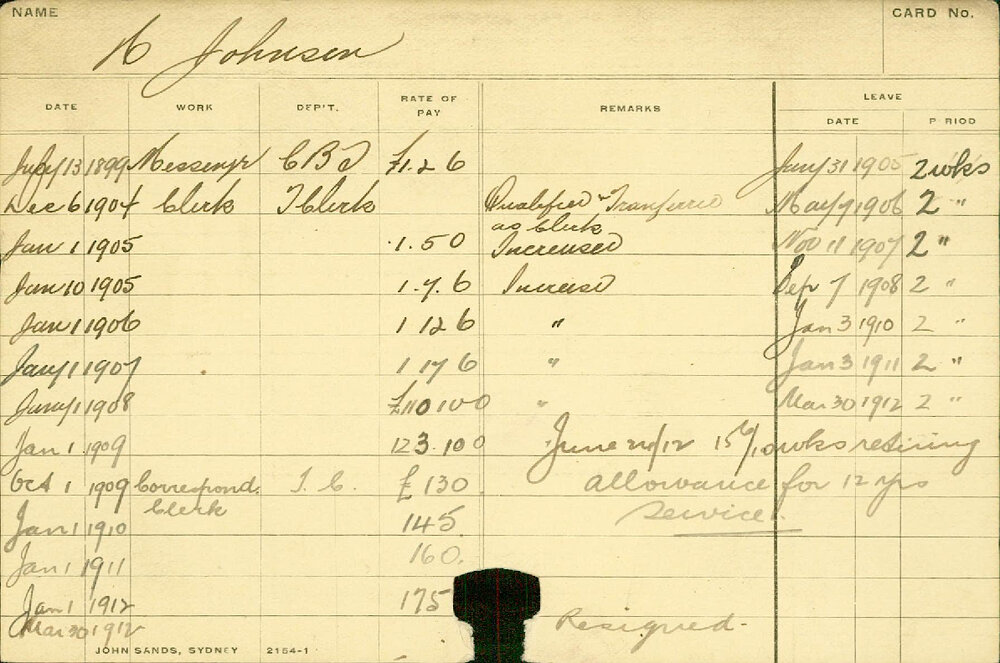 NAME CARD No.
H Johnson
DATE WORK DEP'T. RATE OF PAY REMARKS LEAVE
DATE PERIOD
July 13 1899 Messenger £1.2 6 Jany 31 1905 2 wks
Dec 6 1904 Clerk T Clerk Qualified & Transferred May 7 1906 2 "
as Clerk
Jan 1 1905 1.5 0 Increased Nov 11 1907 2 "
Jan 10 1905 1.7.6 Increase Sep 7 1908 2 "
Jan 1 1906 1 12 6 " Jan 3 1910 2 "
Jany 1 1907 1 17 6 " Jan 3 1911 2 "
Jany 1 1908 £110 10 0 " Mar 30 1912 2 "
Jan 1 1909 123.10 0 June 24/12 wks retiring
Oct 1 1909 Correspond. T. C. £130 allowance for 12 yrs
Clerk service.
Jan 1 1910 145
Jan 1 1911 160.
Jan 1 1912 175
Mar 30 1912 Resigned.
JOHN SANDS, SYDNEY 2154-1